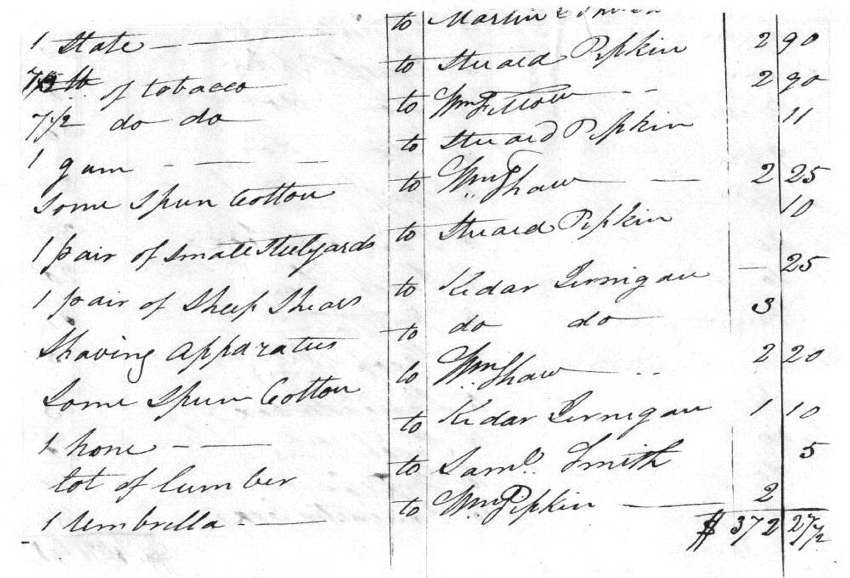 1 Slate — to Martin
of tobacco to Stuard Pipkin 2 90
7 1/2 do do to Wm Fellow 2 90
1 gum to Stuard Pipkin 11
Some Spun Cotton to Wm Shaw 2 25
1 pair of Small Steelyards to Stuard Pipkin 10
1 pair of Sheep Shears to Kedar Jernigan — 25
Shaving apparatus to do do 3
Some Spun Cotton to Wm Shaw 2 20
1 hone — to Kedar Jernigan 1 10
lot of lumber to Saml. Smith 5
1 umbrella — to Wm Pipkin — 2
$ 372 27 1/2